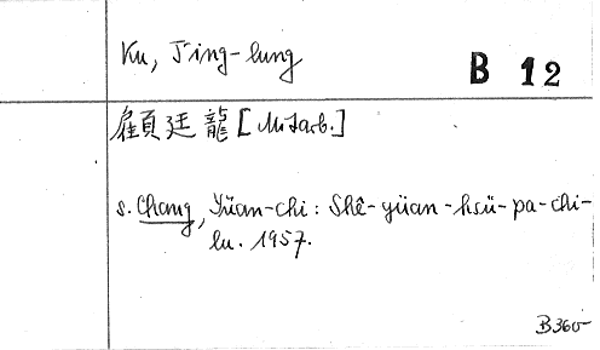 Ku, T'ing-lung
B 12
顧廷龍 [Mitarb.]
s. Chang, Yüan-chi: Shê-yüan-hsü-pa-chi-
lu. 1957.
B360